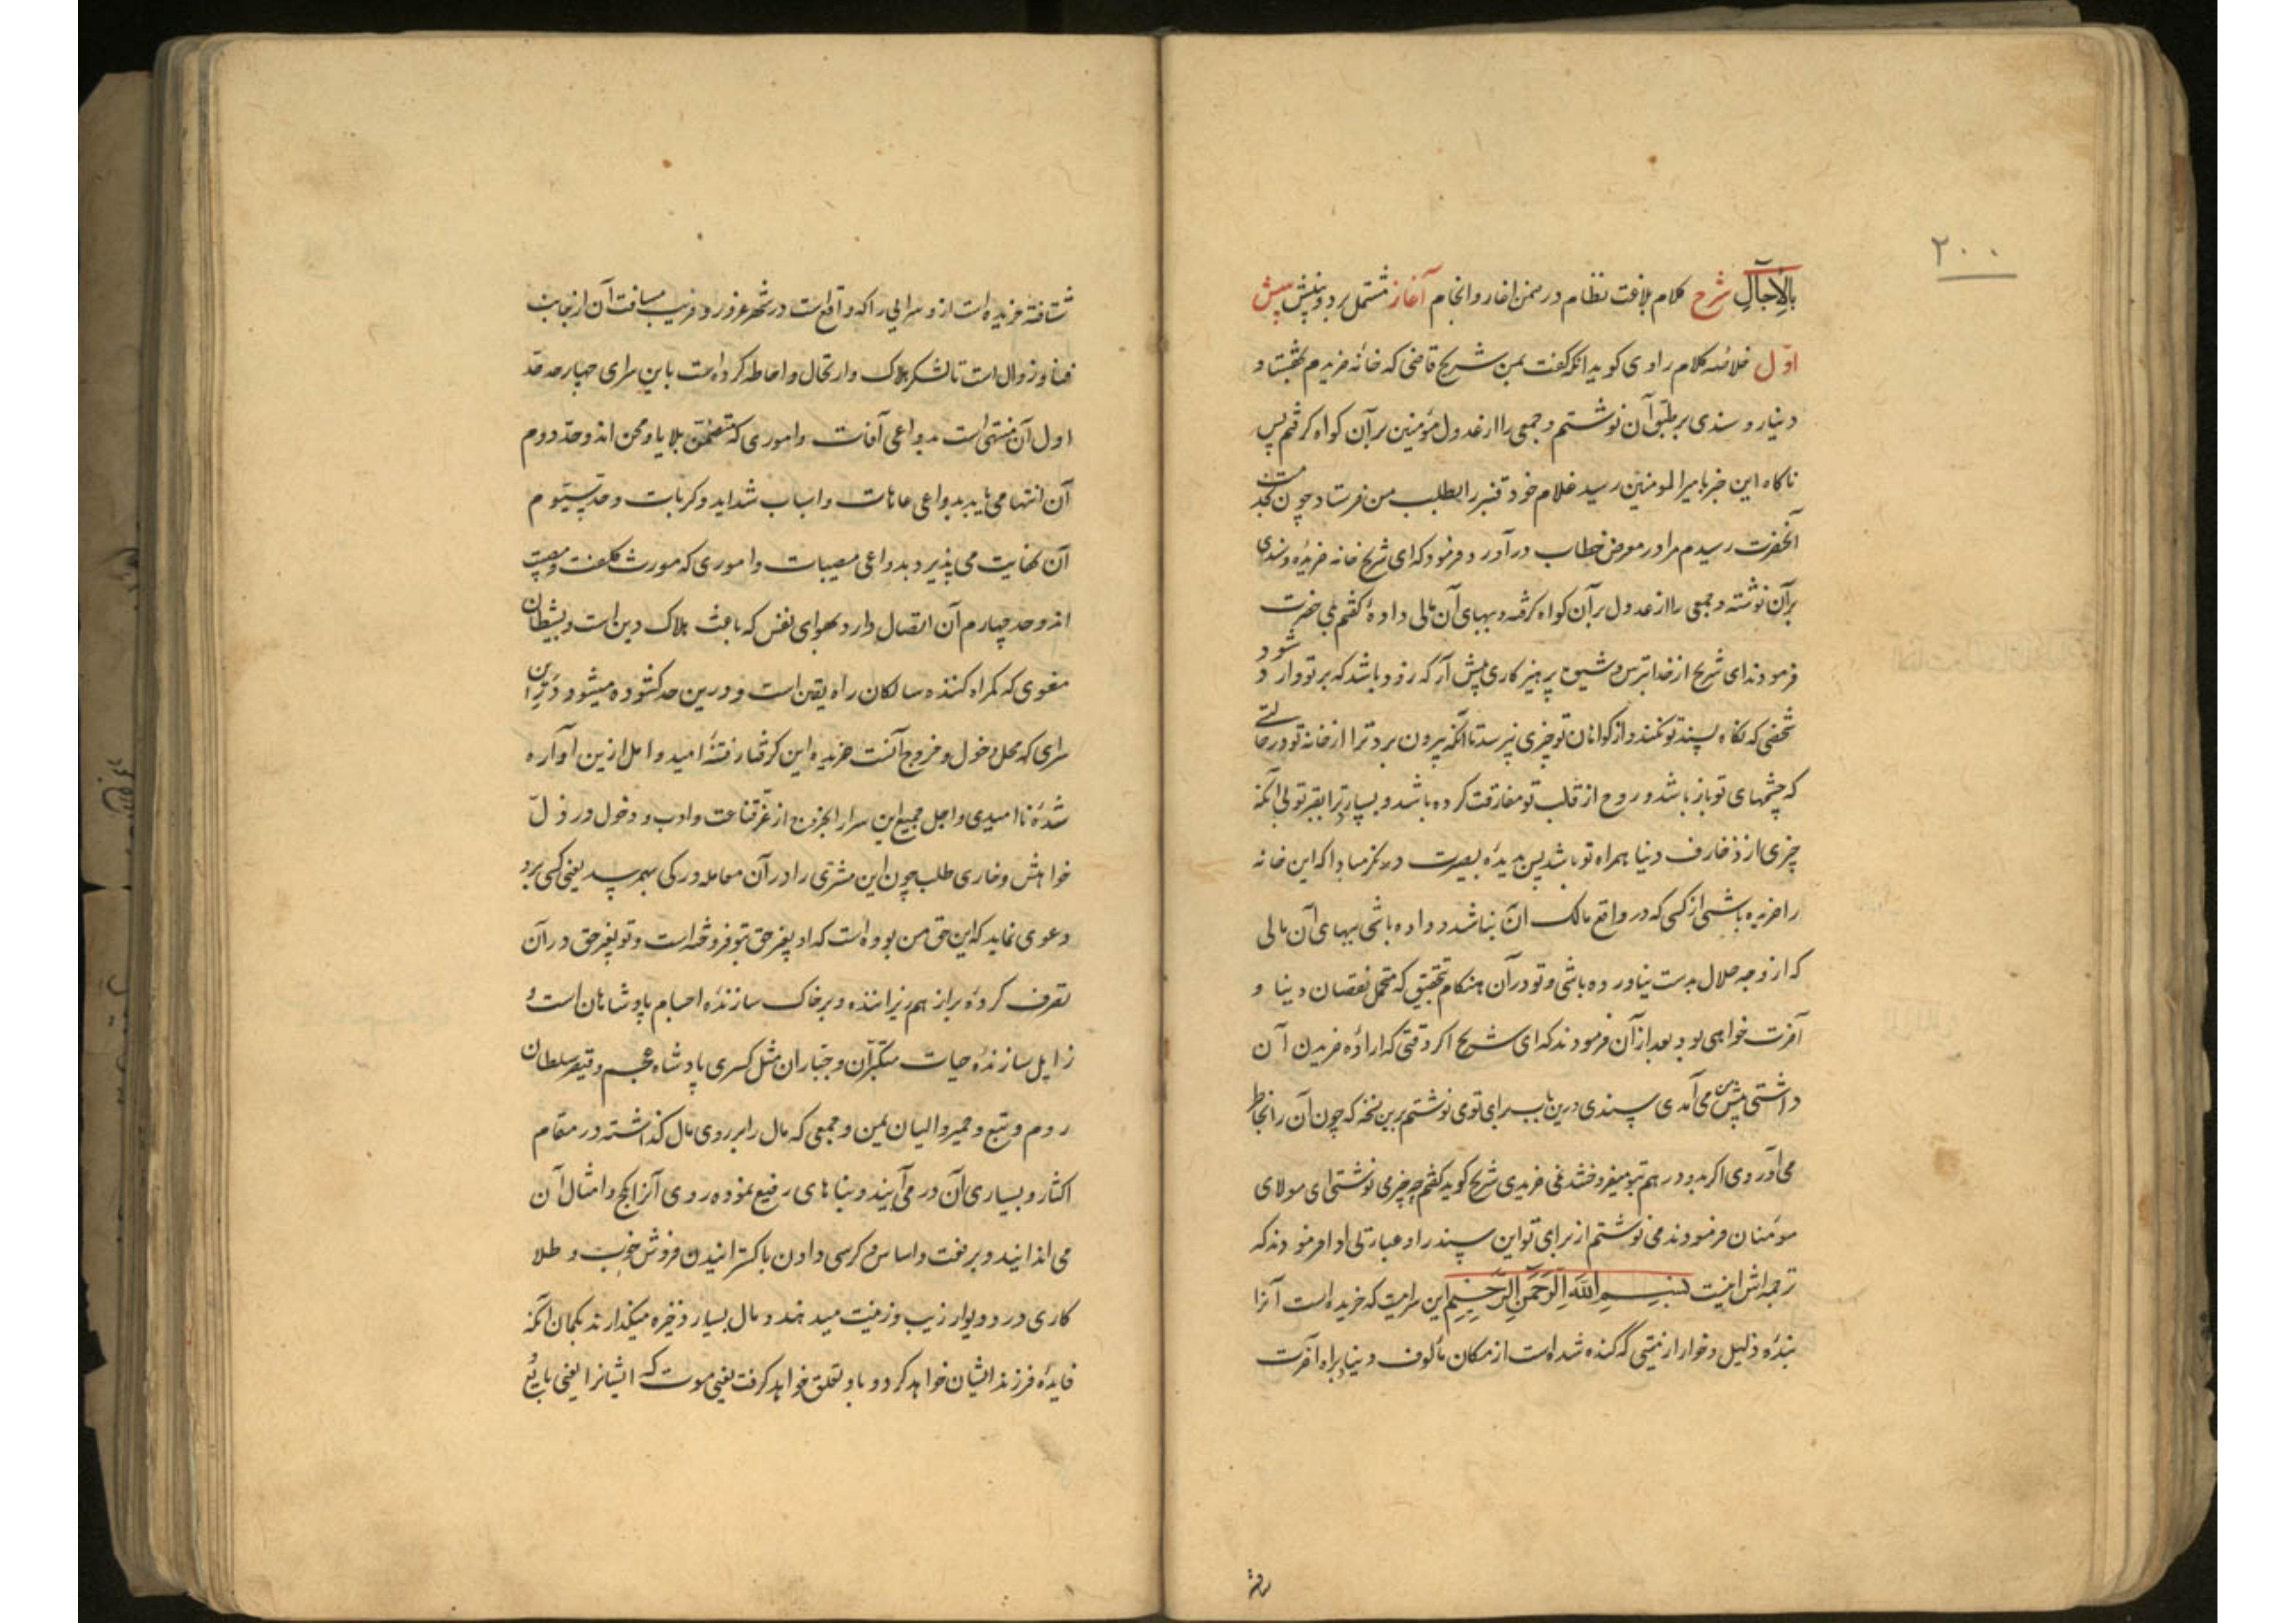 ۲۰۰
بِالْآجَالِ شرح کلام بلاغت نظام در ضمن اخبار و انجام آغاز مشتمل بر دو بینش بینش
اول خلاصه کلام راوی کوید آنکه کفت بمن شریح قاضی که خانه خریدم بهشتاد
دینار و سندی بر طبق آن نوشتم و جمعی را از عدول مؤمنین بر آن کواه کرفتم پس
ناکاه این خبر بامیرالمومنین رسید غلام خود قنبر را بطلب من فرستاد چون بخدمت
آنحضرت رسیدم مرا در معرض خطاب درآورد و فرمود که ای شریح خانه خریدهٔ و سندی
بر آن نوشته و جمعی را از عدول بر آن کواه کرفته و ببهای آن مالی دادهٔ کفتم بلی حضرت
فرمودند ای شریح از خدا بترس و شیوه پرهیزکاری پیش آر که زود باشد که بر تو وارد شود
شخصی که نکاه بسند تو نکند و از کواهان تو چیزی نپرسد تا آنکه بیرون برد ترا از خانه تو در حالتی
که چشمهای تو باز باشد و روح از قلب تو مفارقت کرده باشد و بسپارد ترا بقبر تو بی آنکه
چیزی از زخارف دنیا همراه تو باشد پس بدیدهٔ بصیرت در نکر مبادا که این خانه
را خریده باشی از کسی که در واقع مالک آن نباشد و داده باشی ببهای آن مالی
که از وجه حلال بدست نیاورده باشی و تو در آن هنکام بتحقیق که متحمل نقصان دنیا و
آخرت خواهی بود بعد از آن فرمودند که ای شریح اکر وقتی که ارادهٔ خریدن آن
داشتی پیش من می آمدی سندی درین باب برای تو می نوشتم برین نسخه که چون آن را بخاطر
می آوردی اکر بدو درهم بتو میفروختند نمی خریدی شریح کوید کفتم چه چیز می نوشتی ای مولای
مؤمنان فرمودند می نوشتم از برای تو این سند را و عبارتی ادا فرمودند که
ترجمه اش اینست بِسْمِ اللَّهِ الرَّحْمَنِ الرَّحِيمِ این سرایست که خریده است آنرا
بندهٔ ذلیل و خوار از میتی که کنده شده است از مکان مألوف دنیا براه آخرت
شتافته خریده است از و سرایی را که واقع است در شهر غرور و فریب مسافت آن از جانب
فنا و زوال است تا لشکر هلاک و ارتحال و احاطه کرده است باین سرای چهار حد حد
اول آن منتهی است بدواعی آفات و اموری که متضمن بلایا و محن اند و حد دوم
آن انتها می یابد بدواعی عاهات و اسباب شداید و کربات و حد سیوم
آن نهایت می پذیرد بدواعی مصیبات و اموری که مورث کلفت و مصیبت
اند و حد چهارم آن اتصال دارد بهوای نفس که باعث هلاک دین است و بشیطان
مغوی که کمراه کننده سالکان راه یقین است و درین حد کشوده میشود در این
سرای که محل دخول و خروج آنست خریده این کرفتار فتنهٔ امید و امل از این آواره
شدهٔ ناامیدی و اجل جمیع این سرا را بخروج از عزّ قناعت و ادب و دخول در ذلّ
خواهش و خاری طلب چون این مشتری را در آن معامله درکی بهم رسد یعنی کسی برو
دعوی نماید که این حق من بوده است که او بغیر حق بتو فروخته است و تو بغیر حق در آن
تصرف کردهٔ بر از هم ریزاننده و بر خاک سازندهٔ اجسام پادشاهان است و
زایل سازندهٔ حیات متکبران و جباران مثل کسری پادشاه عجم و قیصر سلطان
روم و تبع و حمیر والیان یمن و جمعی که مال را بر روی مال کذاشته در مقام
اکثار و بسیاری آن در می آیند و بناهای رفیع نموده روی آنرا بکج و امثال آن
می اندایند و برفعت و اساس و کرسی دادن با کسترانیدن فروش خوب و طلا
کاری در و دیوار زیب و زینت میدهند و مال بسیار ذخیره میکذارند بکمان آنکه
فایدهٔ فرزند ایشان خواهد کرد و باو تعلق خواهد کرفت یعنی موت که ایشانرا یعنی بایع و